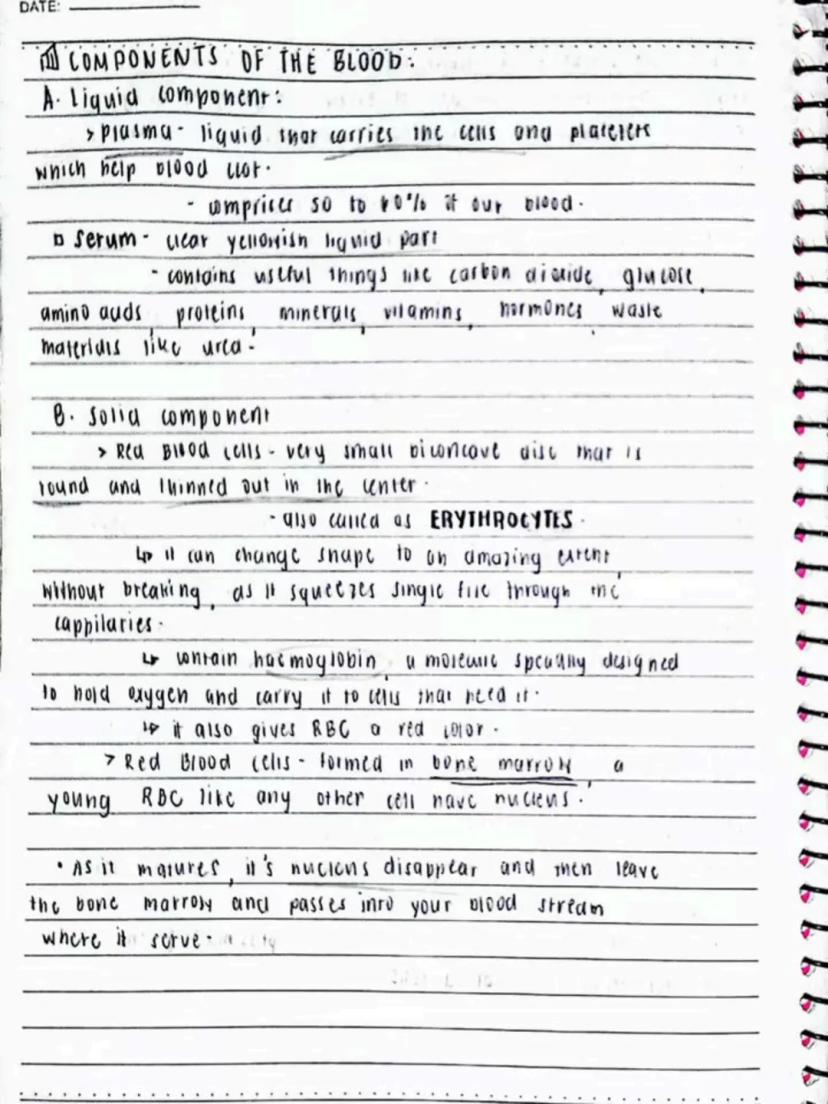 DATE:
COMPONENTS OF THE BLOOD:
A. Liquid component:
> Plasma - liquid that carries the cells and platelets
which help blood clot.
- comprises 50 to 60% it our blood.
Serum - clear yellowish liquid part
- contains useful things like carbon dioxide, glucose,
amino acids, proteins, minerals, vitamins, hormones, waste
materials like urea.
B. Solid component
> Red Blood Cells - very small biconcave disc that is
round and thinned out in the center.
- also called as ERYTHROCYTES.
↳ it can change shape to an amazing extent,
without breaking, as it squeezes single file through the
cappilaries.
↳ contain haemoglobin, a molecule specially designed
to hold oxygen and carry it to cells that need it.
↳ it also gives RBC a red color.
> Red Blood Cells - formed in bone marrow, a
young RBC like any other cell have nucleus.
• As it matures, it's nucleus disappear and then leave
the bone marrow and passes into your blood stream
where it serve.